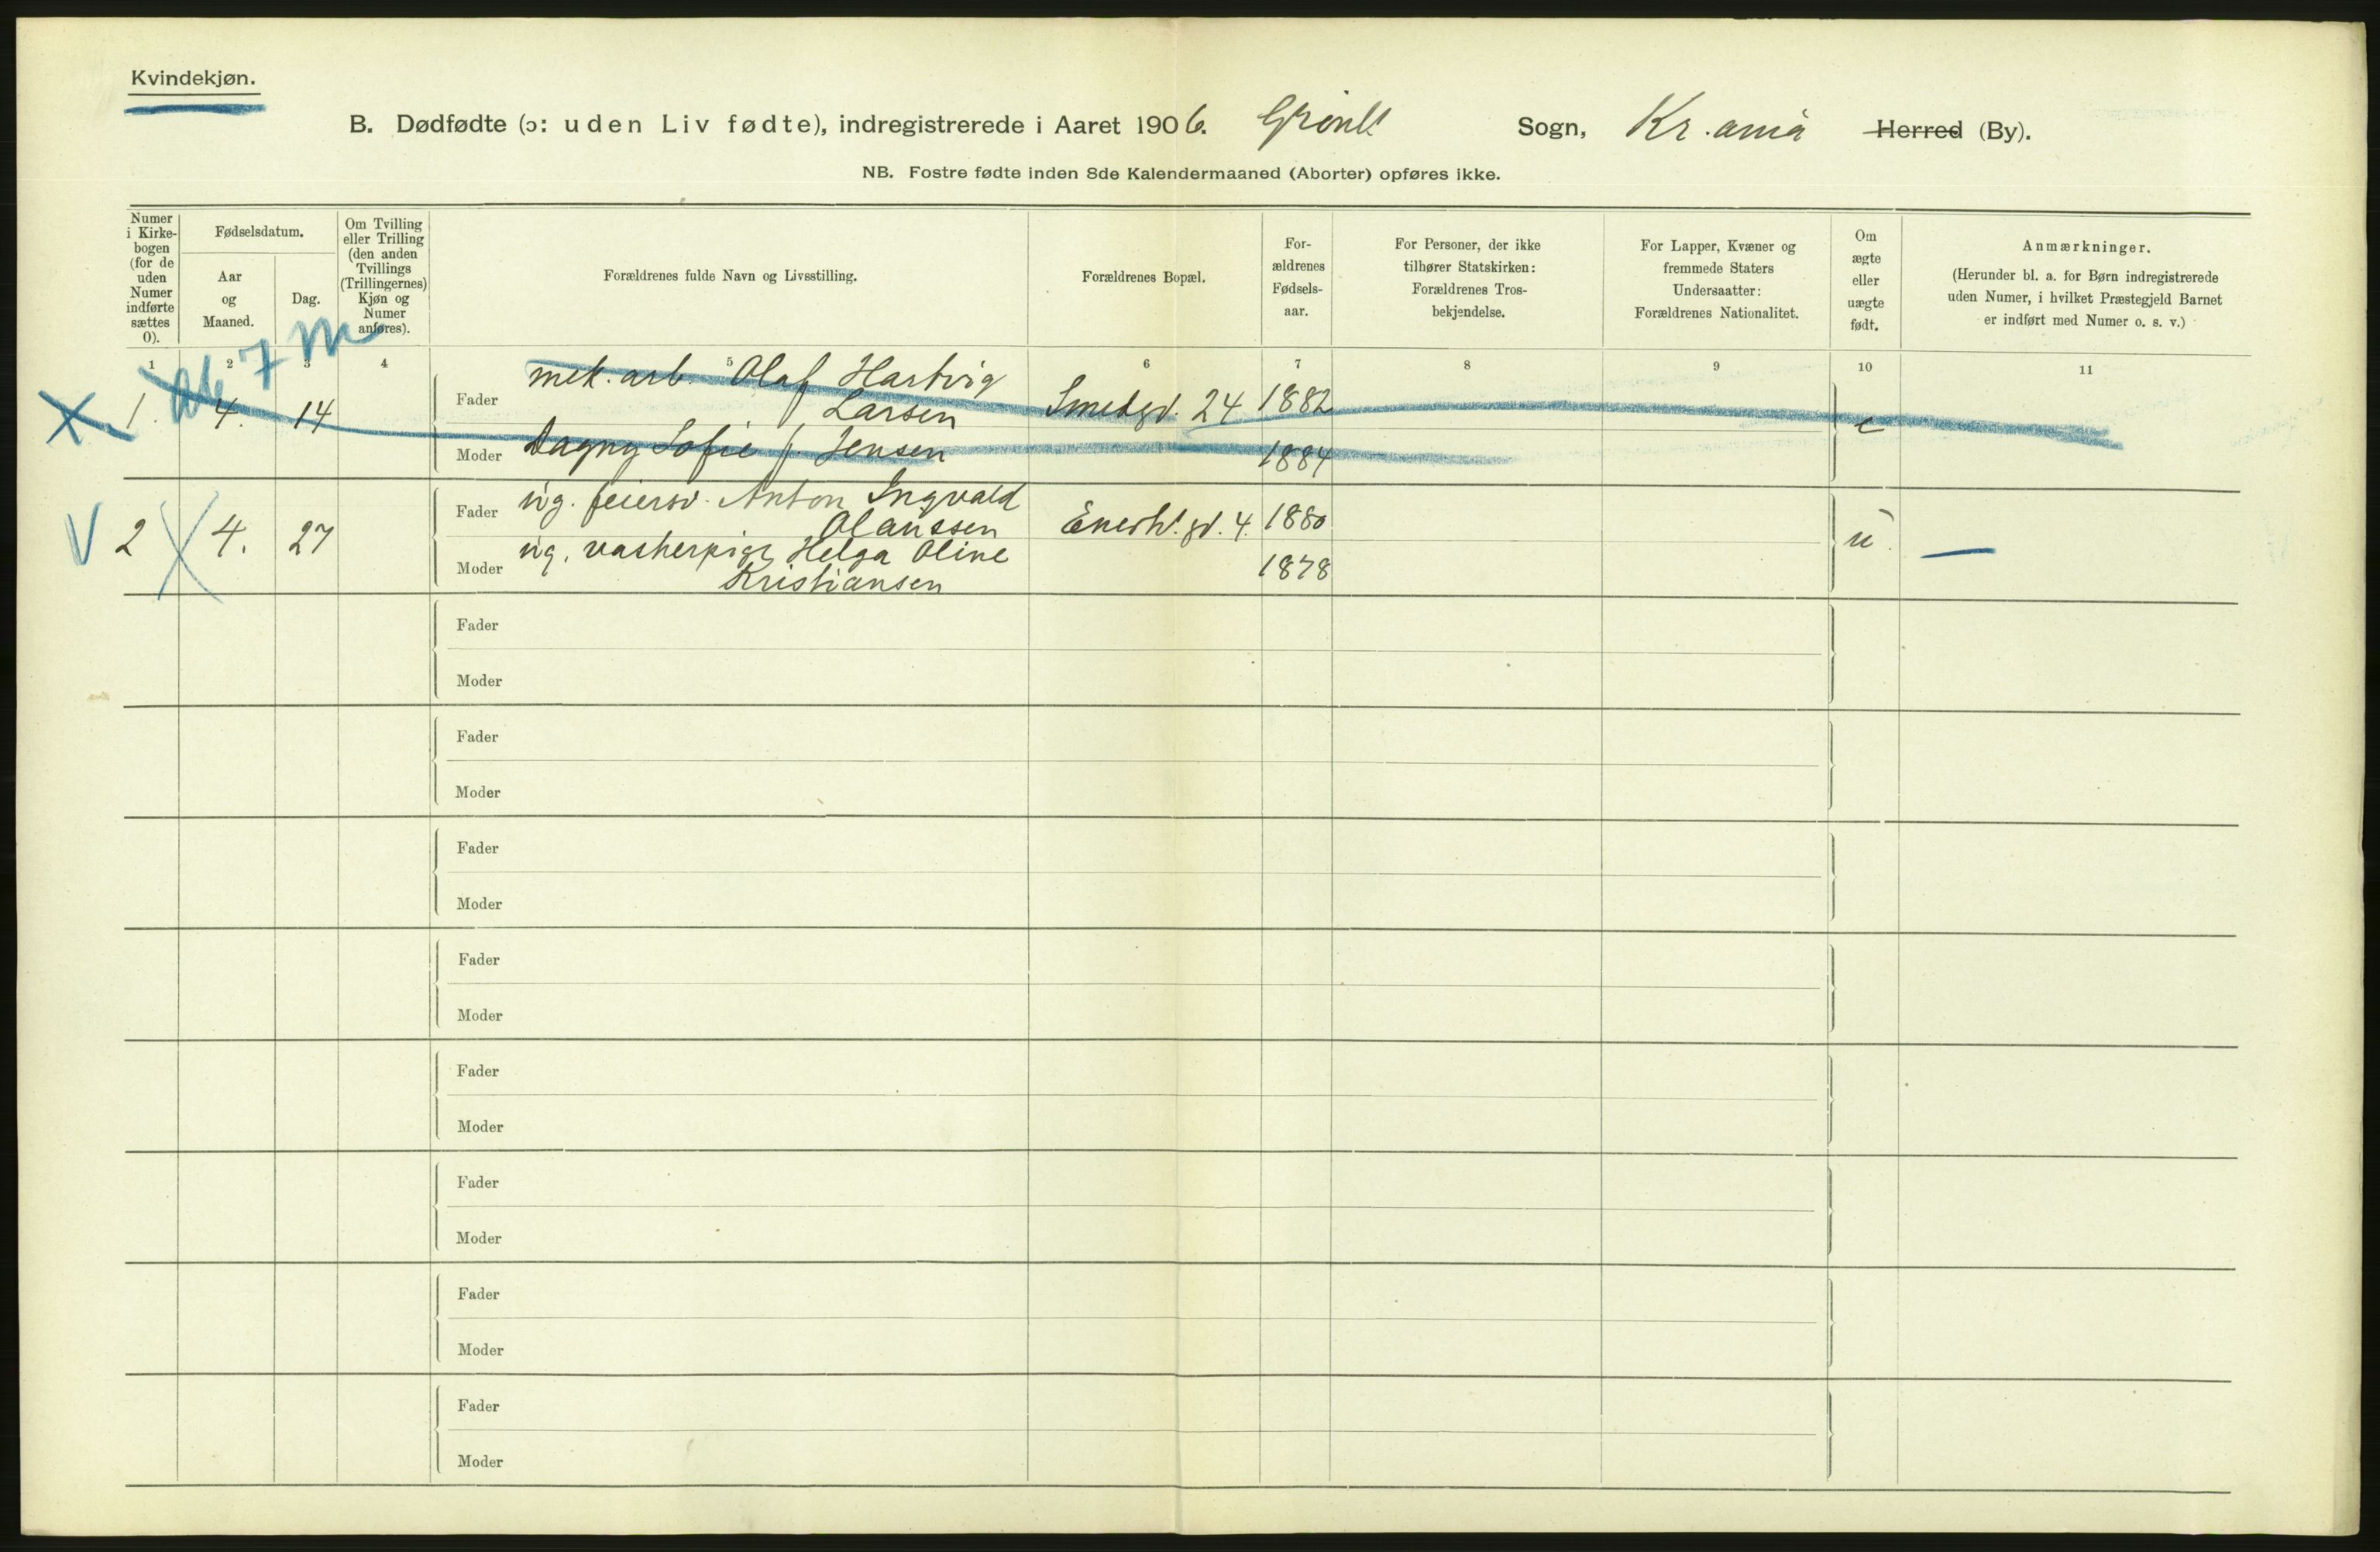 Kvindekjøn.
B. Dødfødte (ɔ: uden Liv fødte), indregistrerede i Aaret 1906. Grønl. Sogn, Kr.ania Herred (By).
NB. Fostre fødte inden 8de Kalendermaaned (Aborter) opføres ikke.
Numer i Kirke-bogen (for de uden Numer indførte sættes 0).
Fødselsdatum.
Aar og Maaned.
Dag.
Om Tvilling eller Trilling (den anden Tvillings (Trillingernes) Kjøn og Numer anføres).
Forældrenes fulde Navn og Livsstilling.
Forældrenes Bopæl.
For-ældrenes Fødsels-aar.
For Personer, der ikke tilhører Statskirken: Forældrenes Tros-bekjendelse.
For Lapper, Kvæner og fremmede Staters Undersaatter: Forældrenes Nationalitet.
Om ægte eller uægte født.
Anmærkninger.
(Herunder bl. a. for Børn indregistrerede uden Numer, i hvilket Præstegjeld Barnet er indført med Numer o. s. v.)
7 m
1 2 3 4 5 6 7 8 9 10 11
1. 4. 14 Fader mek. arb. Olaf Hartvig Larsen Smedgd. 24 1882 e
Moder Dagny Sofie f. Jensen 1884
V 2 4. 27 Fader ug. feiersv. Anton Ingvald Olaussen Enerh.gd. 4. 1880 u.
Moder ug. vaskerpige Helga Oline Kristiansen 1878
Fader
Moder
Fader
Moder
Fader
Moder
Fader
Moder
Fader
Moder
Fader
Moder
Fader
Moder
Fader
Moder